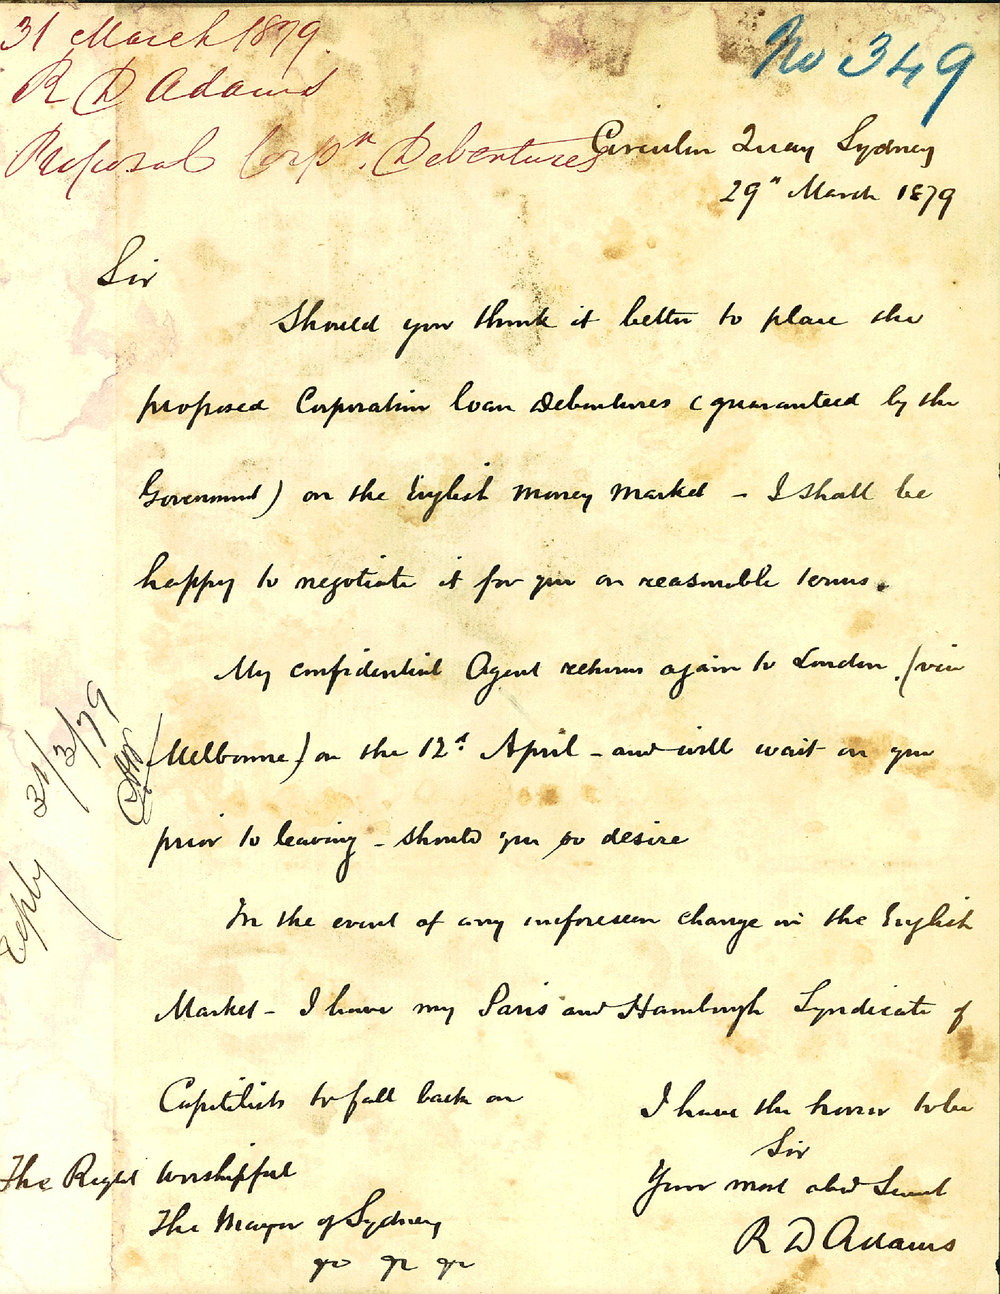 31 March 1879.
R D Adams
Proposal Corpn. Debentures
No 349
Circular Quay Sydney
29" March 1879
Sir
Should you think it better to place the
proposed Corporation loan Debentures (guaranteed by the
Government) on the English Money Market - I shall be
happy to negotiate it for you on reasonable terms.
My confidential Agent returns again to London (via
Melbourne) on the 12th April - and will wait on you
prior to leaving - should you so desire
In the event of any unforeseen change in the English
Market - I have my Paris and Hamburgh Syndicate of
Capitilists to fall back on
I have the honor to be
Sir
Your most obdt Servant
R D Adams
The Right Worshipful
The Mayor of Sydney
Reply 31/3/79